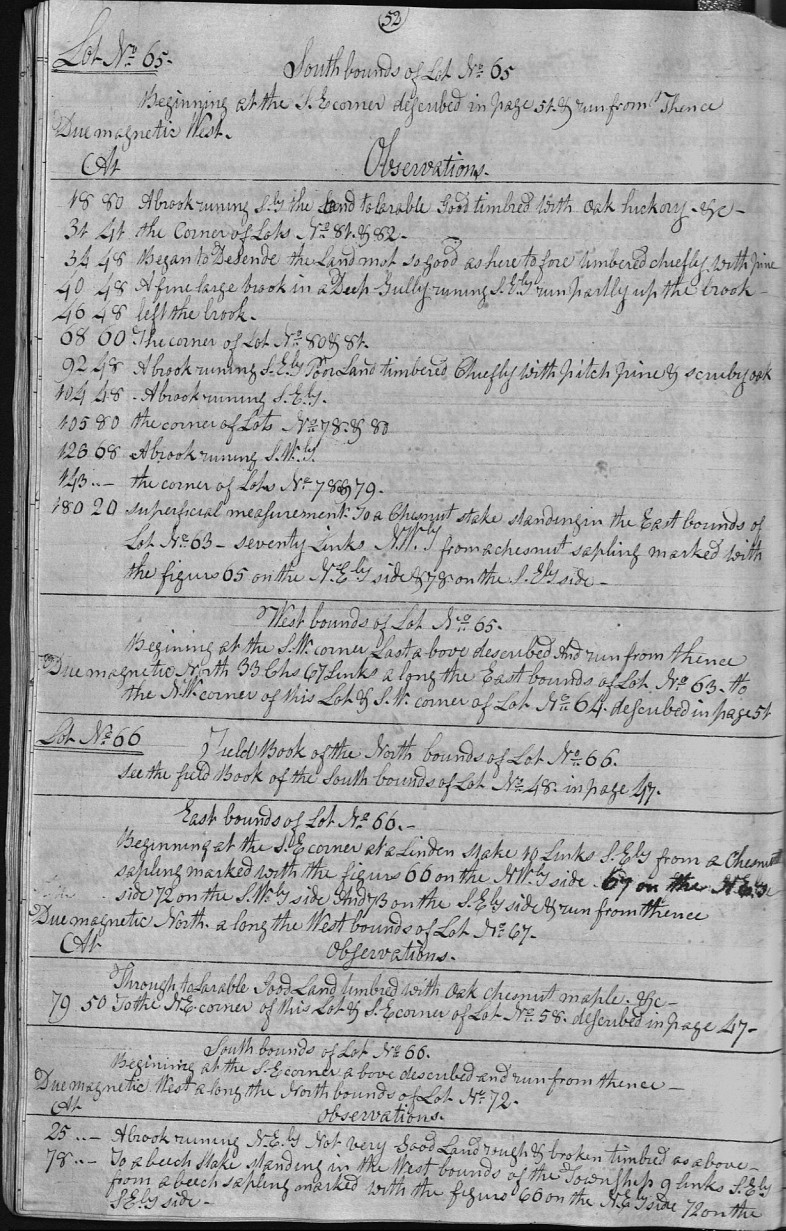 52
Lot No. 65.
South bounds of Lot No. 65
Beginning at the S.E corner described in page 51. & run from Thence
Due magnetic West.
At Observations.
18 80 A brook runing S.ly the Land tolarable Good timbred with Oak hickory &c –
31 41 the Corner of Lots No. 81. & 82 –
34 48 Began to Desende the Land not so good as here to fore timbered chiefly with pine
40 48 A fine large brook in a Deep Gully runing S.E.ly run partly up the brook –
46 48 left the brook.
68 60 The corner of Lot No. 80 & 81.
92 48 A brook runing S.E.ly Poor Land timbered Chiefly with pitch pine & scruby oak
104 48 A brook runing S.E.ly.
105 80 the corner of Lots No. 78. & 80
123 68 A brook runing S.W.ly.
143 .. – the corner of Lots No. 78 & 79.
180 20 superficial measurement To a Chesnut stake standing in the East bounds of
Lot No. 63 – seventy Links N.W.ly from a chesnut sapling marked with
the figurs 65 on the N.E.ly side & 78 on the S.Ely side –
West bounds of Lot No. 65.
Begining at the S.W. corner Last above described And run from thence
Due magnetic North 33 Chs 67 Links a long the East bounds of Lot No. 63. to
the N.W. corner of this Lot & S.W. corner of Lot No. 64. described in page 51
Lot No. 66 Field Book of the North bounds of Lot No. 66.
see the field Book of the South bounds of Lot No. 48. in page 47.
East bounds of Lot No. 66. –
Beginning at the S.E corner at a Linden stake 10 Links S.E.ly from a Chesnutt
sapling marked with the figurs 66 on the N.W.ly side 67 on the N.E.
side 72 on the S.W.ly side And 73 on the S.E.ly side & run from thence
Due magnetic North. a long the West bounds of Lot No. 67.
At Observations.
Through tolarable Good Land timbred with Oak chesnut maple. &c –
79 50 To the N.E. corner of this Lot & S.E corner of Lot No. 58. described in page 47 –
South bounds of Lot No. 66.
Begining at the S.E corner a bove described and run from thence –
Due magnetic West a long the North bounds of Lot No. 72.
At Observations.
25 .. – A brook runing N.E.ly Not very Good Land rough & broken timbred as above –
78 .. – To a beech stake standing in the West bounds of the Township 9 links S.E.ly
from a beech sapling marked with the figurs 66 on the N.E.ly side 72 on the
S.E.ly side –